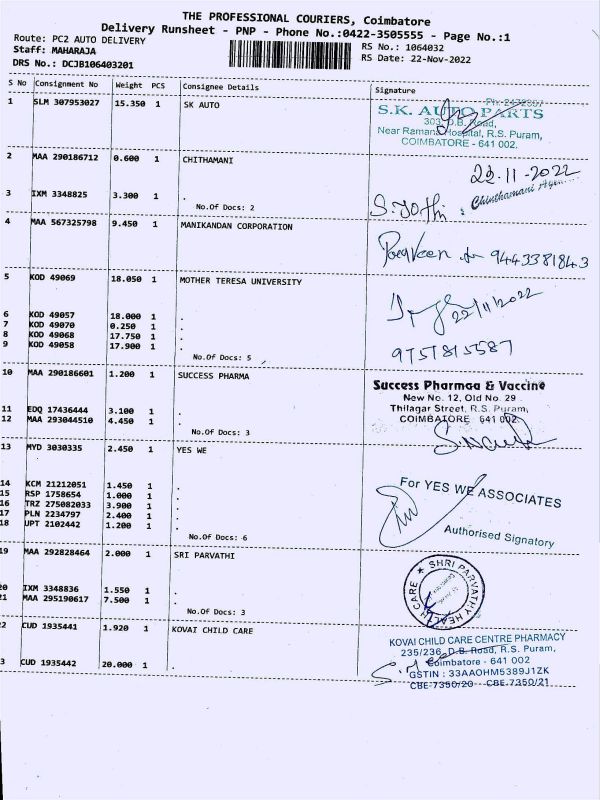 THE PROFESSIONAL COURIERS, Coimbatore
Delivery Runsheet - PNP - Phone No.:0422-3505555 - Page No.:1
Route: PC2 AUTO DELIVERY
RS No.: 1064032
Staff: MAHARAJA
RS Date: 22-Nov-2022
DRS No.: DCJB106403201
S No Consignment No Weight PCS Consignee Details Signature
1 SLM 307953027 15.350 1 SK AUTO
S.K. AUTO PARTS
303, D.B. Road,
Near Ramana Hospital, R.S. Puram,
COIMBATORE - 641 002.
2 MAA 290186712 0.600 1 CHITHAMANI
3 IXM 3348825 3.300 1 .
No.Of Docs: 2
S. Jothi
4 MAA 567325798 9.450 1 MANIKANDAN CORPORATION
9443381843
5 KOD 49069 18.050 1 MOTHER TERESA UNIVERSITY
22/11/2022
6 KOD 49057 18.000 1 .
7 KOD 49070 0.250 1 .
8 KOD 49068 17.750 1 .
9 KOD 49058 17.900 1 .
No.Of Docs: 5
9757815587
10 MAA 290186601 1.200 1 SUCCESS PHARMA
Success Pharmaa & Vaccine
New No. 12, Old No. 29
Thilagar Street, R.S. Puram,
COIMBATORE 641 002.
11 EDQ 17436444 3.100 1 .
12 MAA 293044510 4.450 1 .
No.Of Docs: 3
13 MYD 3030335 2.450 1 YES WE
14 KCM 21212051 1.450 1 .
15 RSP 1758654 1.000 1 .
16 TRZ 275082033 3.900 1 .
17 PLN 2234797 2.400 1 .
18 UPT 2102442 1.200 1 .
No.Of Docs: 6
For YES WE ASSOCIATES
Authorised Signatory
19 MAA 292828464 2.000 1 SRI PARVATHI
SHRI PARVATHY HEALTH CARE
20 IXM 3348836 1.550 1 .
21 MAA 295190617 7.500 1 .
No.Of Docs: 3
2 CUD 1935441 1.920 1 KOVAI CHILD CARE
3 CUD 1935442 20.000 1 .
KOVAI CHILD CARE CENTRE PHARMACY
235/236, D.B. Road, R.S. Puram,
Coimbatore - 641 002
GSTIN : 33AAOHM5389J1ZK
CBE-7350/20 CBE-7350/21